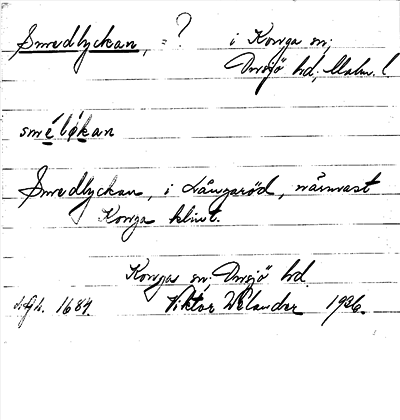 Smedlyckan, = ? i Konga sn;
Onsjö hd; Malm. l.
smélǿkan
Smedlyckan, i Långaröd, närmast
Konga klint.
Konga sn; Onsjö hd.
1684. Viktor Welander 1926.